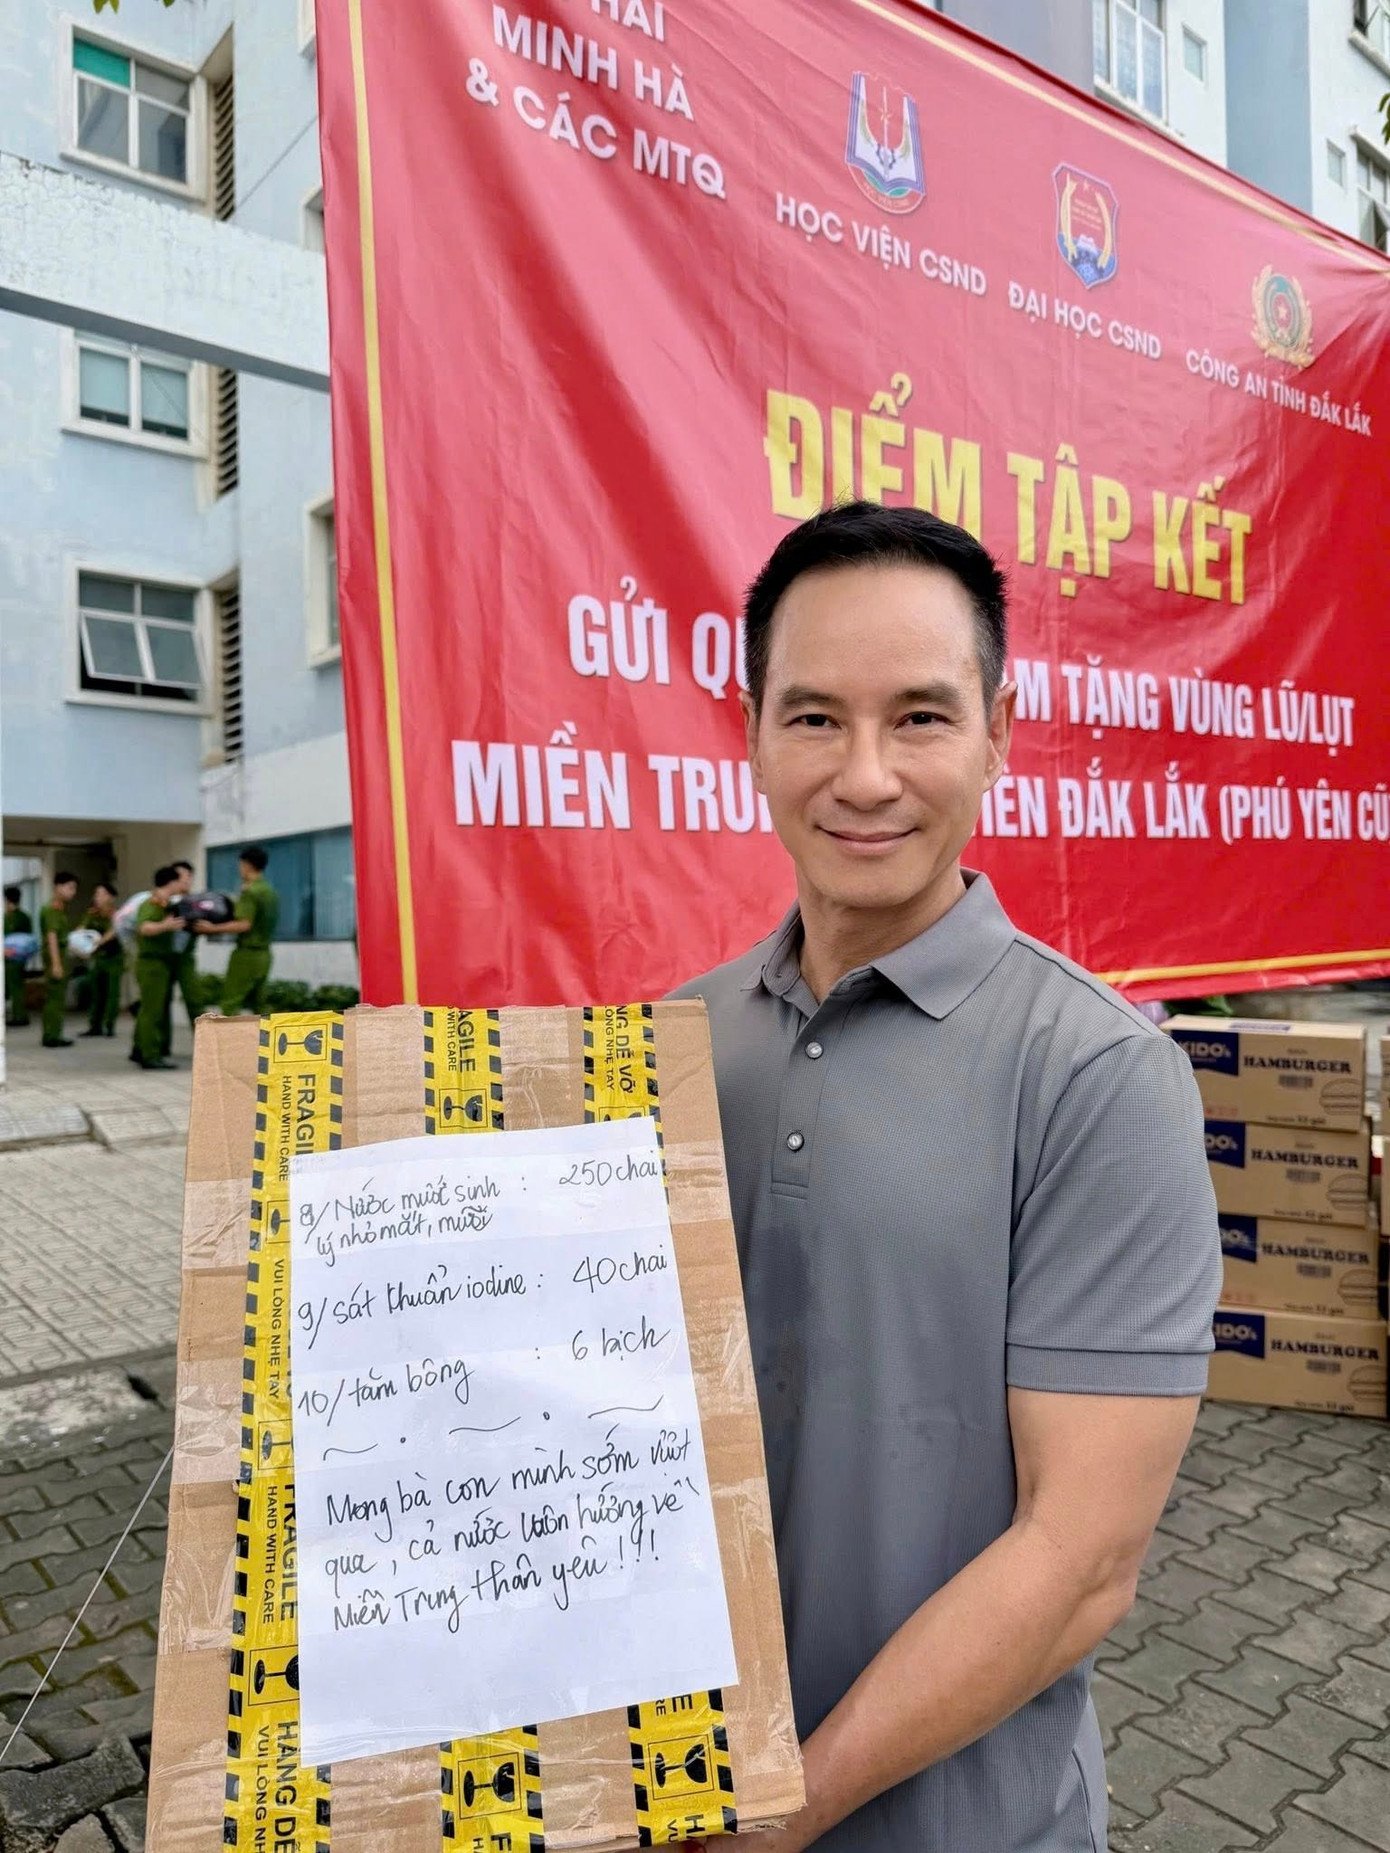 HẢI
MINH HÀ
& CÁC MTQ
HỌC VIỆN CSND
ĐẠI HỌC CSND
CÔNG AN TỈNH ĐẮK LẮK
ĐIỂM TẬP KẾT
GỬI TẶNG VÙNG LŨ/LỤT
MIỀN ĐẮK LẮK (PHÚ YÊN
KIDO's HAMBURGER
HAMBURGER
HAMBURGER
KIDO's HAMBURGER
FRAGILE
HAND WITH CARE
VUI LÒNG NHẸ TAY
FRAGILE
HAND WITH CARE
HÀNG DỄ
VUI LÒNG NHẸ
FRAGILE
WITH CARE
DỄ VỠ
LÒNG NHẸ TAY
8/ Nước muối sinh : 250 chai
lý nhỏ mắt, mũi
9/ sát khuẩn iodine : 40 chai
10/ tăm bông : 6 bịch
Mong bà con mình sớm vượt
qua, cả nước luôn hướng về
Miền Trung thân yêu!!!